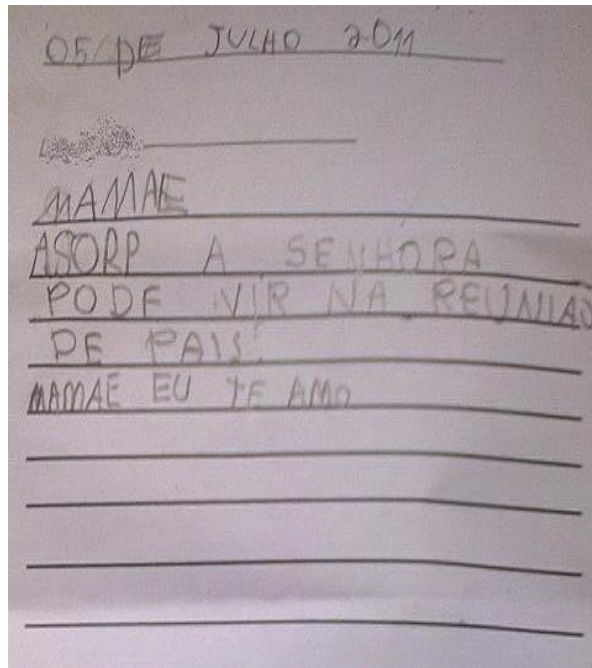 05/DE JULHO 2011
MAMAE
ASORP A SENHORA
PODE VIR NA REUNIAO
DE PAIS
MAMAE EU TE AMO